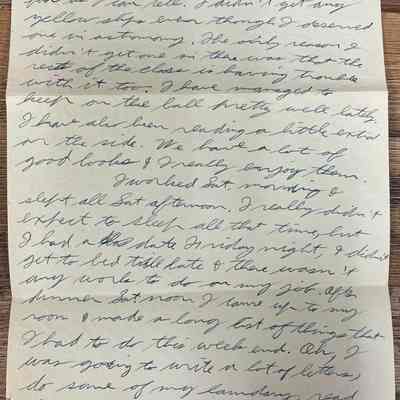 far as I can tell. I didn't get any
yellow slips even though I deserved
one in astronomy. The only reason I
didn't get one in there was that the
rest of the class is having trouble
with it too. I have managed to
keep on the ball pretty well lately.
I have also been reading a little extra
on the side. We have a lot of
good books & I really enjoy them.
I worked Sat. morning &
slept all Sat afternoon. I really didn't
expect to sleep all that time, but
I had a date Friday night, & didn't
get to bed till late & there wasn't
any work to do on my job. After
dinner Sat noon I came up to my
room & made a long list of things that
I had to do this week end. Oh, I
was going to write a lot of letters,
do some of my laundry, read